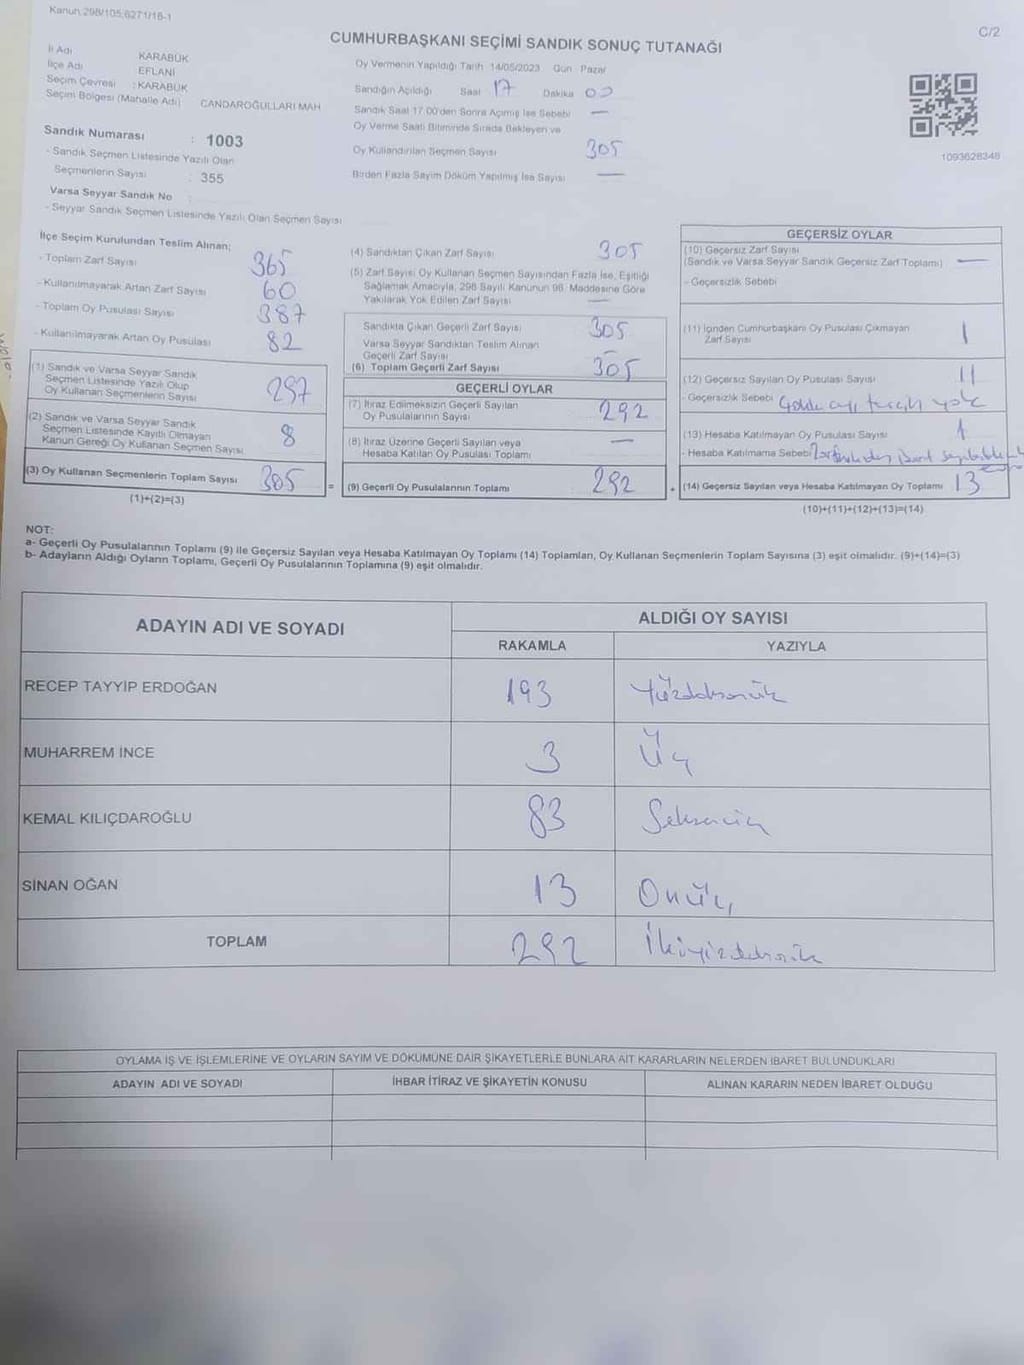 Kanun 298/105,6271/18-1
C/2
CUMHURBAŞKANI SEÇİMİ SANDIK SONUÇ TUTANAĞI
İl Adı KARABÜK
İlçe Adı EFLANİ
Seçim Çevresi : KARABÜK
Seçim Bölgesi (Mahalle Adı) CANDAROĞULLARI MAH
Sandık Numarası : 1003
- Sandık Seçmen Listesinde Yazılı Olan
Seçmenlerin Sayısı : 355
Varsa Seyyar Sandık No
- Seyyar Sandık Seçmen Listesinde Yazılı Olan Seçmen Sayısı
Oy Vermenin Yapıldığı Tarih 14/05/2023 Gün Pazar
Sandığın Açıldığı Saat 17 Dakika 00
Sandık Saat 17.00'den Sonra Açılmış İse Sebebi —
Oy Verme Saati Bitiminde Sırada Bekleyen ve
Oy Kullandırılan Seçmen Sayısı 305
Birden Fazla Sayım Döküm Yapılmış İse Sayısı —
1093628348
İlçe Seçim Kurulundan Teslim Alınan;
- Toplam Zarf Sayısı 365
- Kullanılmayarak Artan Zarf Sayısı 60
- Toplam Oy Pusulası Sayısı 387
- Kullanılmayarak Artan Oy Pusulası 82
(1) Sandık ve Varsa Seyyar Sandık
Seçmen Listesinde Yazılı Olup
Oy Kullanan Seçmenlerin Sayısı 297
(2) Sandık ve Varsa Seyyar Sandık
Seçmen Listesinde Kayıtlı Olmayan
Kanun Gereği Oy Kullanan Seçmen Sayısı 8
(3) Oy Kullanan Seçmenlerin Toplam Sayısı 305
(1)+(2)=(3)
(4) Sandıktan Çıkan Zarf Sayısı 305
(5) Zarf Sayısı Oy Kullanan Seçmen Sayısından Fazla İse, Eşitliği
Sağlamak Amacıyla, 298 Sayılı Kanunun 98. Maddesine Göre
Yakılarak Yok Edilen Zarf Sayısı —
Sandıkta Çıkan Geçerli Zarf Sayısı 305
Varsa Seyyar Sandıktan Teslim Alınan
Geçerli Zarf Sayısı —
(6) Toplam Geçerli Zarf Sayısı 305
GEÇERLİ OYLAR
(7) İtiraz Edilmeksizin Geçerli Sayılan
Oy Pusulalarının Sayısı 292
(8) İtiraz Üzerine Geçerli Sayılan veya
Hesaba Katılan Oy Pusulası Toplamı —
= (9) Geçerli Oy Pusulalarının Toplamı 292
GEÇERSİZ OYLAR
(10) Geçersiz Zarf Sayısı
(Sandık ve Varsa Seyyar Sandık Geçersiz Zarf Toplamı) —
- Geçersizlik Sebebi
(11) İçinden Cumhurbaşkanı Oy Pusulası Çıkmayan
Zarf Sayısı 1
(12) Geçersiz Sayılan Oy Pusulası Sayısı 11
- Geçersizlik Sebebi tercih yok
(13) Hesaba Katılmayan Oy Pusulası Sayısı 1
- Hesaba Katılmama Sebebi
+ (14) Geçersiz Sayılan veya Hesaba Katılmayan Oy Toplamı 13
(10)+(11)+(12)+(13)=(14)
NOT:
a- Geçerli Oy Pusulalarının Toplamı (9) ile Geçersiz Sayılan veya Hesaba Katılmayan Oy Toplamı (14) Toplamları, Oy Kullanan Seçmenlerin Toplam Sayısına (3) eşit olmalıdır. (9)+(14)=(3)
b- Adayların Aldığı Oyların Toplamı, Geçerli Oy Pusulalarının Toplamına (9) eşit olmalıdır.
ADAYIN ADI VE SOYADI ALDIĞI OY SAYISI
RAKAMLA YAZIYLA
RECEP TAYYİP ERDOĞAN 193 Yüzdoksanüç
MUHARREM İNCE 3 Üç
KEMAL KILIÇDAROĞLU 83 Seksenüç
SİNAN OĞAN 13 Onüç
TOPLAM 292 İkiyüzdoksaniki
OYLAMA İŞ VE İŞLEMLERİNE VE OYLARIN SAYIM VE DÖKÜMÜNE DAİR ŞİKAYETLERLE BUNLARA AİT KARARLARIN NELERDEN İBARET BULUNDUKLARI
ADAYIN ADI VE SOYADI İHBAR İTİRAZ VE ŞİKAYETİN KONUSU ALINAN KARARIN NEDEN İBARET OLDUĞU